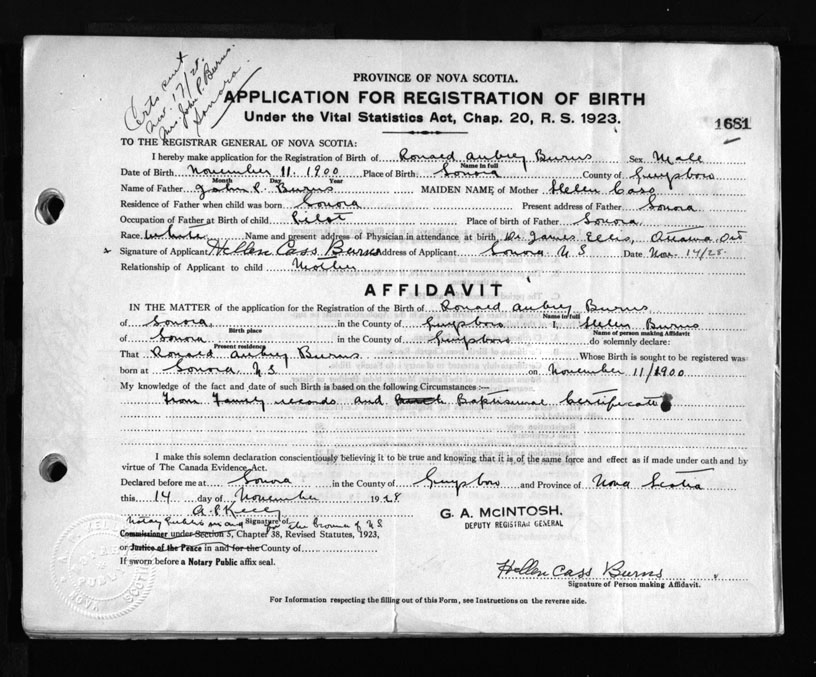 Certs sent
Nov. 17/28.
Mr. John P. Burns.
Sonora.
PROVINCE OF NOVA SCOTIA.
APPLICATION FOR REGISTRATION OF BIRTH
Under the Vital Statistics Act, Chap. 20, R. S. 1923.
1681
TO THE REGISTRAR GENERAL OF NOVA SCOTIA:
I hereby make application for the Registration of Birth of Ronald Aubrey Burns Sex Male
Name in full
Date of Birth November 11 1900 Place of Birth Sonora County of Guysboro
Month Day Year
Name of Father John P. Burns MAIDEN NAME of Mother Helen Cass
Residence of Father when child was born Sonora Present address of Father Sonora
Occupation of Father at Birth of child Pilot Place of birth of Father Sonora
Race White Name and present address of Physician in attendance at birth Dr. James Ellis, Ottawa, Ont
x Signature of Applicant Hellen Cass Burns Address of Applicant Sonora N S Date Nov. 14/28.
Relationship of Applicant to child Mother
AFFIDAVIT
IN THE MATTER of the application for the Registration of the Birth of Ronald Aubrey Burns
Name in full
of Sonora, in the County of Guysboro I, Helen Burns
Birth place Name of person making Affidavit
of Sonora in the County of Guysboro do solemnly declare:
Present residence
That Ronald Aubrey Burns Whose Birth is sought to be registered was
born at Sonora, N.S. on November 11/1900
My knowledge of the fact and date of such Birth is based on the following Circumstances :—
From Family records and Baptismal Certificate
I make this solemn declaration conscientiously believing it to be true and knowing that it is of the same force and effect as if made under oath and by
virtue of The Canada Evidence Act.
Declared before me at Sonora in the County of Guysboro and Province of Nova Scotia
this 14 day of November 1928
G. A. McINTOSH.
DEPUTY REGISTRAR GENERAL
Notary Public in and for the Province of N S
Signature of
Commissioner under Section 3, Chapter 38, Revised Statutes, 1923,
or Justice of the Peace in and for the County of
If sworn before a Notary Public affix seal.
Hellen Cass Burns
Signature of Person making Affidavit.
For Information respecting the filling out of this Form, see Instructions on the reverse side.